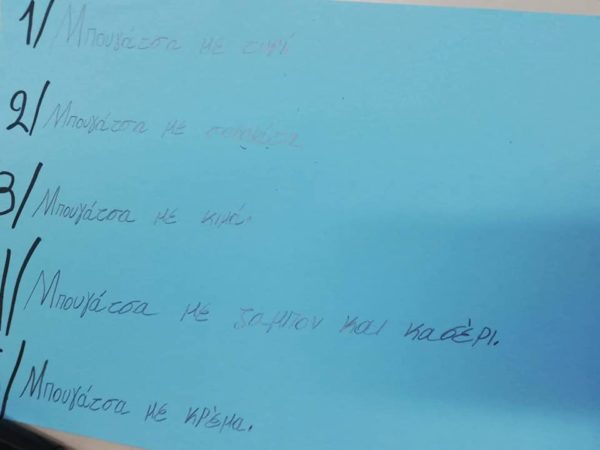 1/ Μπουγάτσα με τυρί
2/ Μπουγάτσα με
3/ Μπουγάτσα με κιμά.
Μπουγάτσα με ζαμπον και κασέρι.
/ Μπουγάτσα με κρέμα.